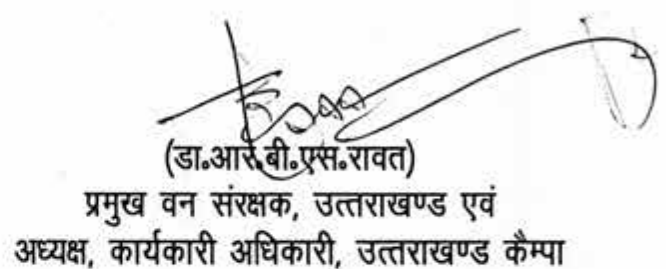 (डा०आर.बी०एस०रावत)
प्रमुख वन संरक्षक, उत्तराखण्ड एवं
अध्यक्ष, कार्यकारी अधिकारी, उत्तराखण्ड कैम्पा